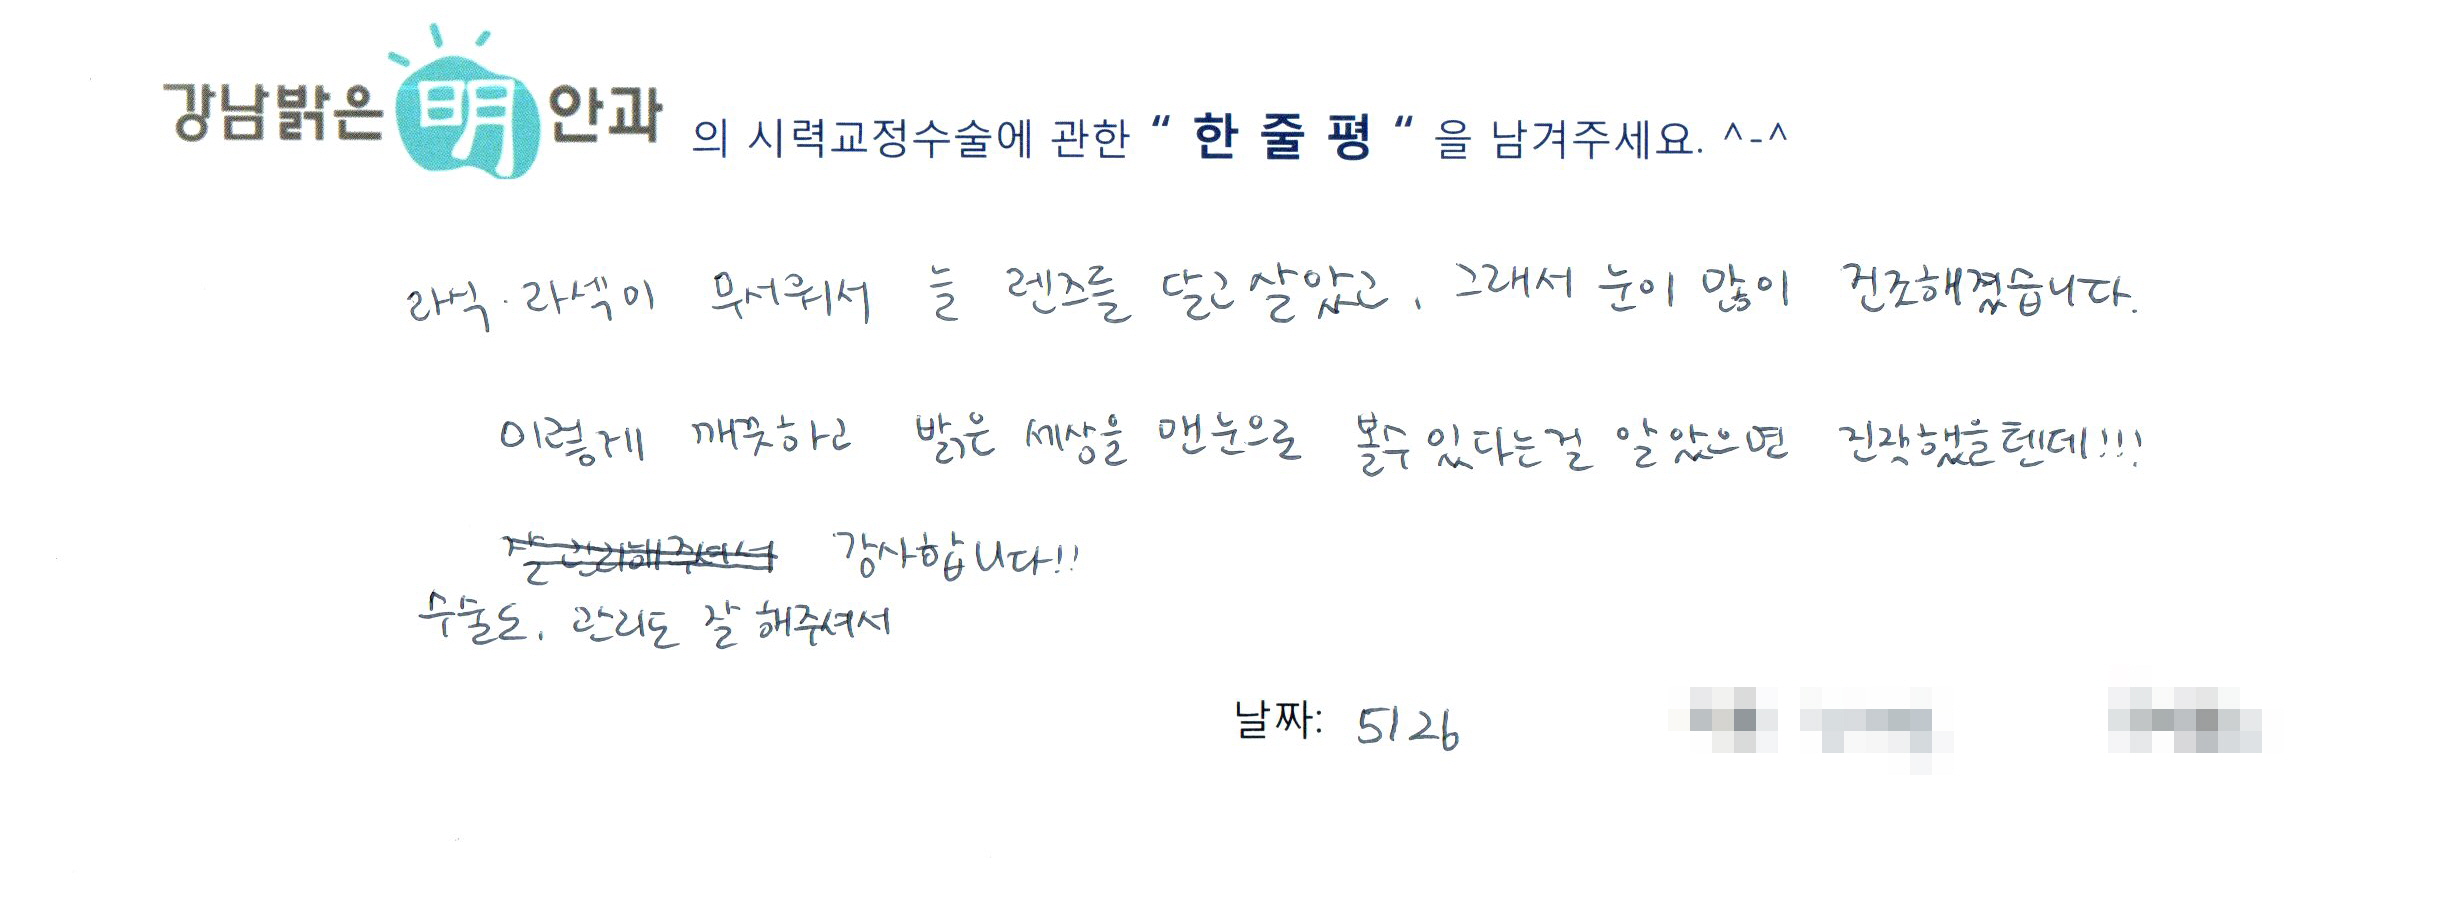 강남밝은明안과 의 시력교정수술에 관한 “ 한 줄 평 “ 을 남겨주세요. ^-^
라식·라섹이 무서워서 늘 렌즈를 달고 살았고, 그래서 눈이 많이 건조해졌습니다.
이렇게 깨끗하고 밝은 세상을 맨눈으로 볼수 있다는걸 알았으면 진작했을텐데!!!
잘 관리해주셔서 감사합니다!!
수술도, 관리도 잘 해주셔서
날짜: 5/26